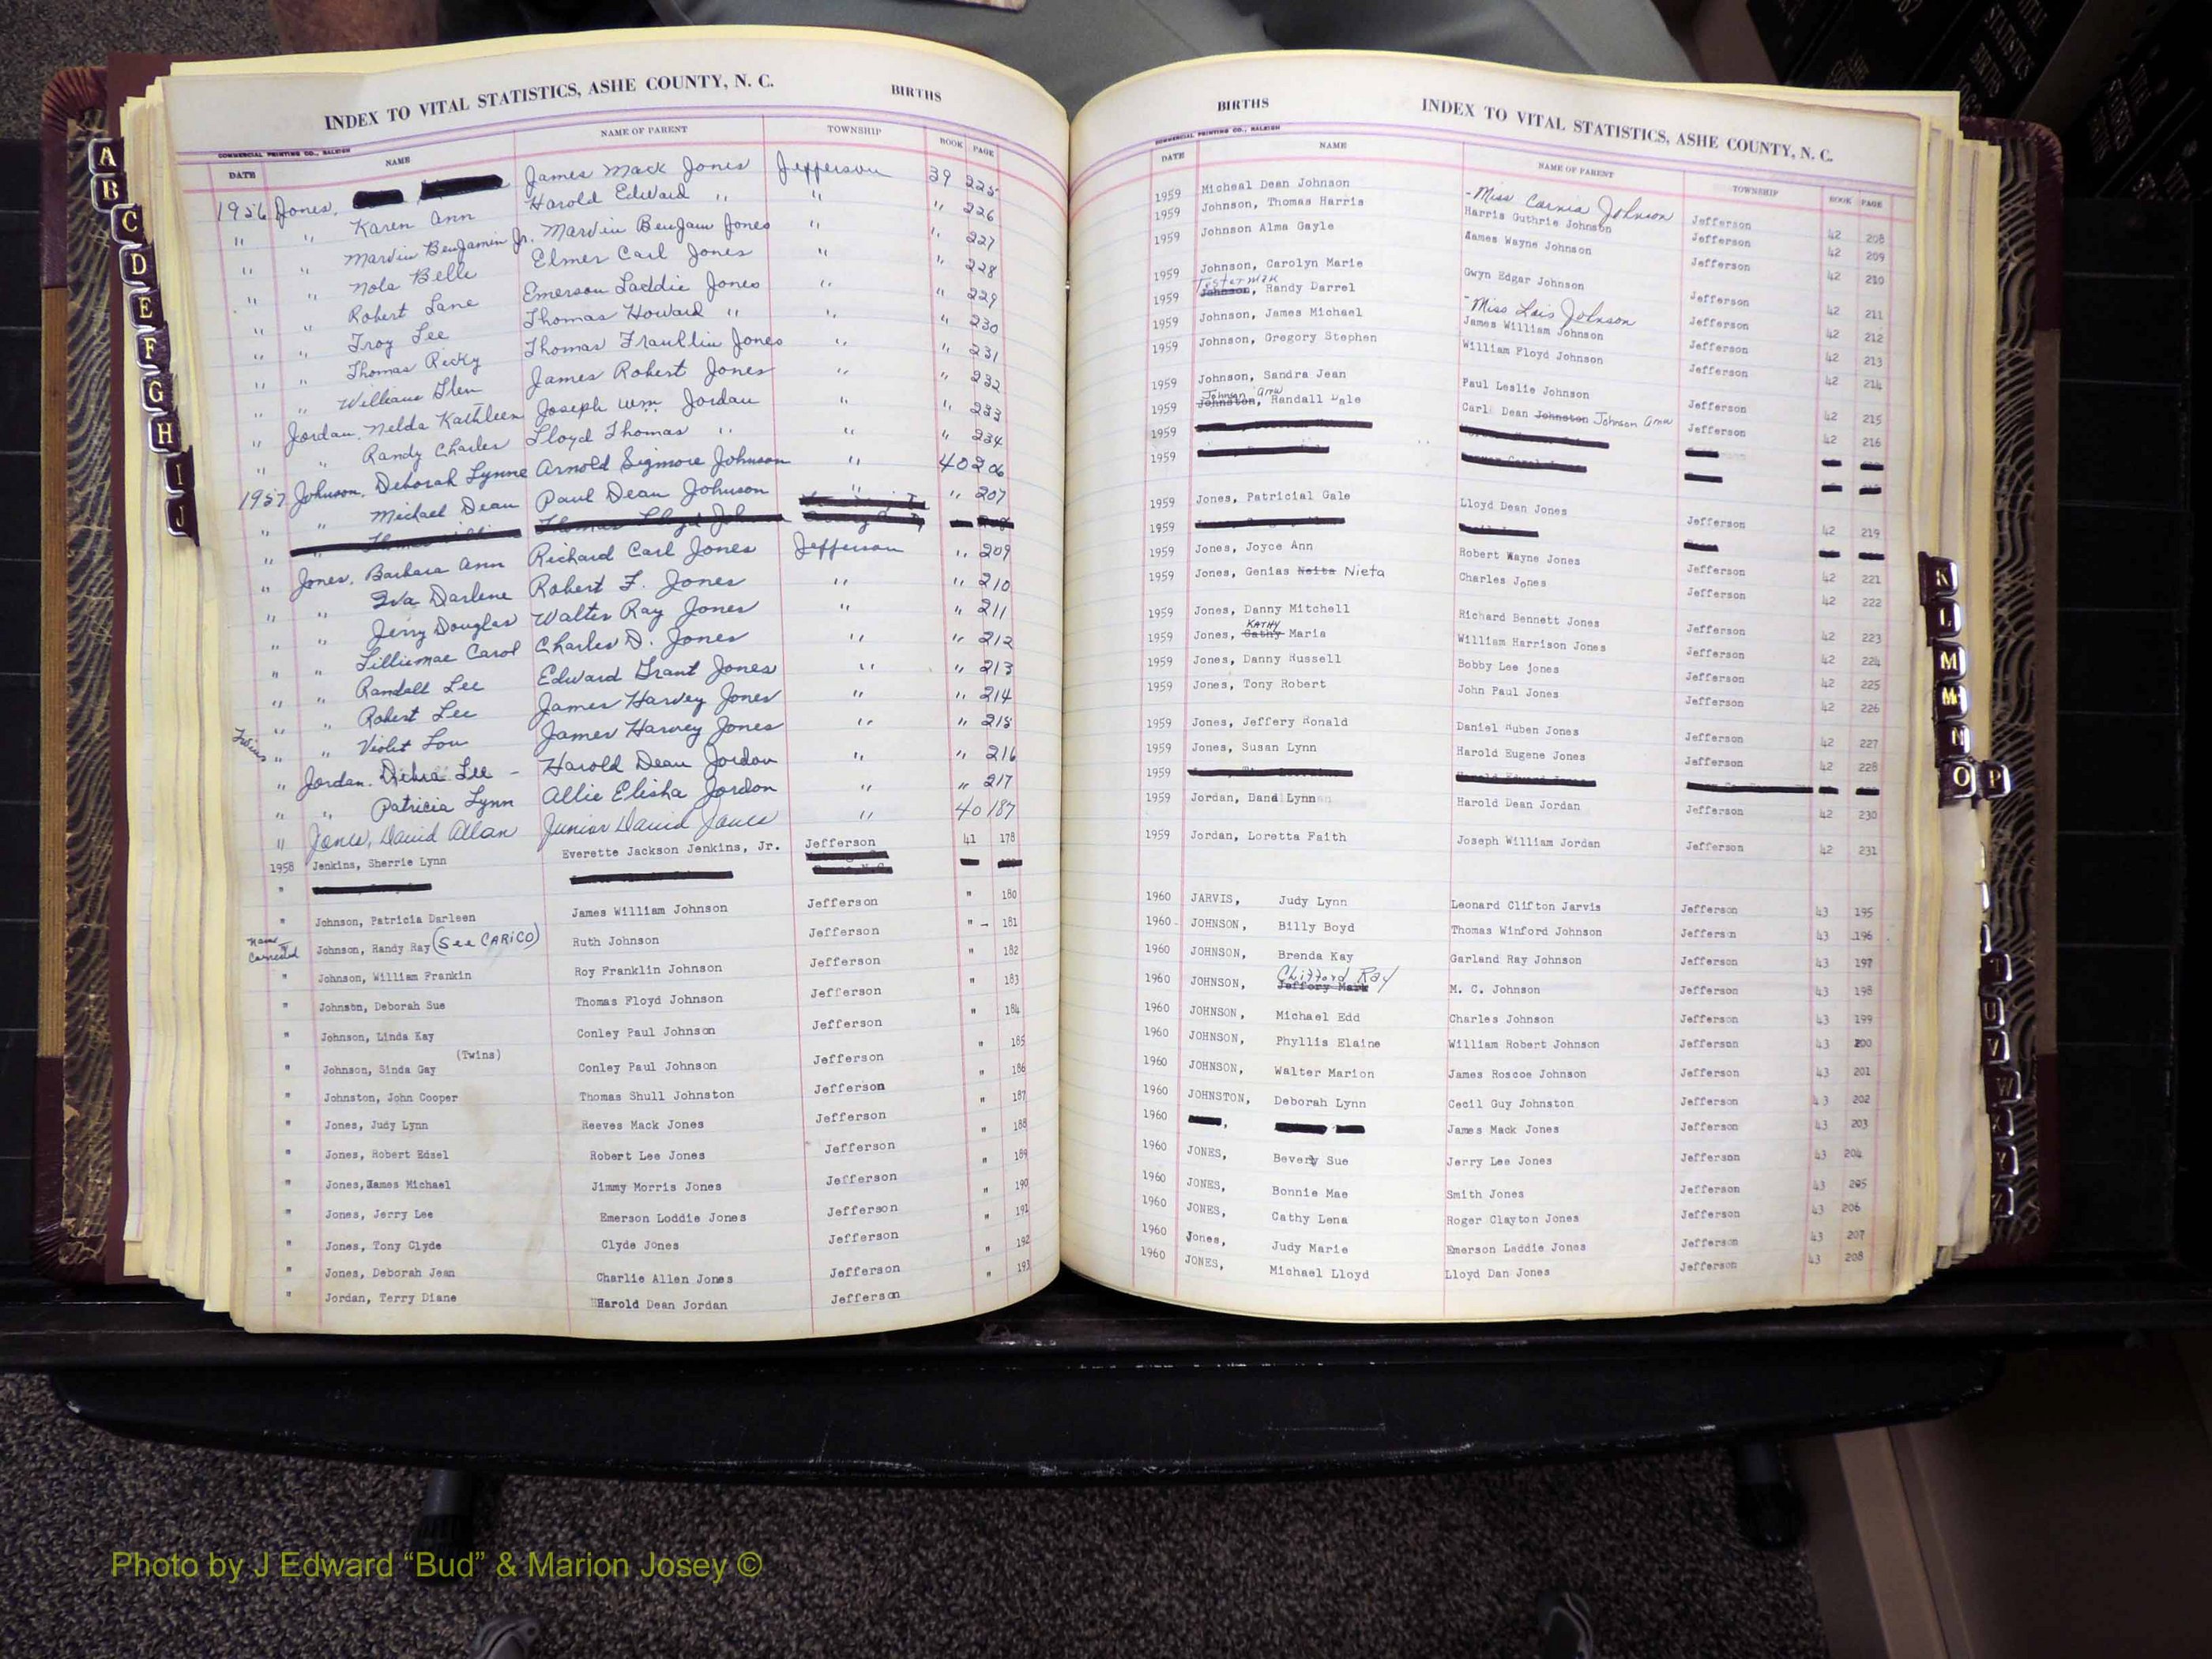 INDEX TO VITAL STATISTICS, ASHE COUNTY, N. C. BIRTHS
COMMERCIAL PRINTING CO., RALEIGH
DATE NAME NAME OF PARENT TOWNSHIP BOOK PAGE
1956 Jones, James Mack Jones Jefferson 39 225
" " Karen Ann Harold Edward " " " 226
" " Marvin Benjamin Jr. Marvin Benjam Jones " " 227
" " Nola Belle Elmer Carl Jones " " 228
" " Robert Lane Emerson Laddie Jones " " 229
" " Troy Lee Thomas Howard " " " 230
" " Thomas Ricky Thomas Franklin Jones " " 231
" " William Glen James Robert Jones " " 232
" Jordan, Nelda Kathleen Joseph Wm. Jordan " " 233
" " Randy Charles Lloyd Thomas " " " 234
1957 Johnson, Deborah Lynne Arnold Sigmore Johnson " 40 206
" " Michael Dean Paul Dean Johnson " " 207
" Jones, Barbara Ann Richard Carl Jones Jefferson " 209
" " Iva Darlene Robert F. Jones " " 210
" " Jerry Douglas Walter Ray Jones " " 211
" " Lilliemae Carol Charles D. Jones " " 212
" " Randall Lee Edward Grant Jones " " 213
" " Robert Lee James Harvey Jones " " 214
Twins " " Violet Lou James Harvey Jones " " 215
" Jordan, Debra Lee - Harold Dean Jordan " " 216
" " Patricia Lynn Allie Elisha Jordon " " 217
" Jones, David Allan Junior David Jones " 40 187
1958 Jenkins, Sherrie Lynn Everette Jackson Jenkins, Jr. Jefferson 41 178
"
" Johnson, Patricia Darleen James William Johnson Jefferson " 180
Name Corrected Johnson, Randy Ray (See CARICO) Ruth Johnson Jefferson " - 181
" Johnson, William Frankin Roy Franklin Johnson Jefferson " 182
" Johnson, Deborah Sue Thomas Floyd Johnson Jefferson " 183
" Johnson, Linda Kay Conley Paul Johnson Jefferson " 184
(Twins)
" Johnson, Sinda Gay Conley Paul Johnson Jefferson " 185
" Johnston, John Cooper Thomas Shull Johnston Jefferson " 186
" Jones, Judy Lynn Reeves Mack Jones Jefferson " 187
" Jones, Robert Edsel Robert Lee Jones Jefferson " 188
" Jones, James Michael Jimmy Morris Jones Jefferson " 189
" Jones, Jerry Lee Emerson Loddie Jones Jefferson " 190
" Jones, Tony Clyde Clyde Jones Jefferson " 191
" Jones, Deborah Jean Charlie Allen Jones Jefferson " 192
" Jordan, Terry Diane Harold Dean Jordan Jefferson " 193
BIRTHS INDEX TO VITAL STATISTICS, ASHE COUNTY, N. C.
COMMERCIAL PRINTING CO., RALEIGH
DATE NAME NAME OF PARENT TOWNSHIP BOOK PAGE
1959 Micheal Dean Johnson -Miss Carnia Johnson Jefferson 42 208
1959 Johnson, Thomas Harris Harris Guthrie Johnson Jefferson 42 209
1959 Johnson Alma Gayle James Wayne Johnson Jefferson 42 210
1959 Johnson, Carolyn Marie Gwyn Edgar Johnson Jefferson 42 211
Testerman
1959 Johnson, Randy Darrel -Miss Lois Johnson Jefferson 42 212
1959 Johnson, James Michael James William Johnson Jefferson 42 213
1959 Johnson, Gregory Stephen William Floyd Johnson Jefferson 42 214
1959 Johnson, Sandra Jean Paul Leslie Johnson Jefferson 42 215
Johnson amw
1959 Johnston, Randall Dale Carl Dean Johnston Johnson amw Jefferson 42 216
1959
1959
1959 Jones, Patricial Gale Lloyd Dean Jones Jefferson 42 219
1959
1959 Jones, Joyce Ann Robert Wayne Jones Jefferson 42 221
1959 Jones, Genias Neita Nieta Charles Jones Jefferson 42 222
1959 Jones, Danny Mitchell Richard Bennett Jones Jefferson 42 223
KATHY
1959 Jones, Cathy Maria William Harrison Jones Jefferson 42 224
1959 Jones, Danny Russell Bobby Lee jones Jefferson 42 225
1959 Jones, Tony Robert John Paul Jones Jefferson 42 226
1959 Jones, Jeffery Ronald Daniel Ruben Jones Jefferson 42 227
1959 Jones, Susan Lynn Harold Eugene Jones Jefferson 42 228
1959
1959 Jordan, Dana Lynn Harold Dean Jordan Jefferson 42 230
1959 Jordan, Loretta Faith Joseph William Jordan Jefferson 42 231
1960 JARVIS, Judy Lynn Leonard Clifton Jarvis Jefferson 43 195
1960 JOHNSON, Billy Boyd Thomas Winford Johnson Jefferson 43 196
1960 JOHNSON, Brenda Kay Garland Ray Johnson Jefferson 43 197
Clifford Ray
1960 JOHNSON, Jeffory Mark M. C. Johnson Jefferson 43 198
1960 JOHNSON, Michael Edd Charles Johnson Jefferson 43 199
1960 JOHNSON, Phyllis Elaine William Robert Johnson Jefferson 43 200
1960 JOHNSON, Walter Marion James Roscoe Johnson Jefferson 43 201
1960 JOHNSTON, Deborah Lynn Cecil Guy Johnston Jefferson 43 202
1960 James Mack Jones Jefferson 43 203
1960 JONES, Bevery Sue Jerry Lee Jones Jefferson 43 204
1960 JONES, Bonnie Mae Smith Jones Jefferson 43 205
1960 JONES, Cathy Lena Roger Clayton Jones Jefferson 43 206
1960 Jones, Judy Marie Emerson Laddie Jones Jefferson 43 207
1960 JONES, Michael Lloyd Lloyd Dan Jones Jefferson 43 208
A
B
C
D
E
F
G
H
I
J
K
L
M
M
N
O P
T
U
V
W
Photo by J Edward “Bud” & Marion Josey ©